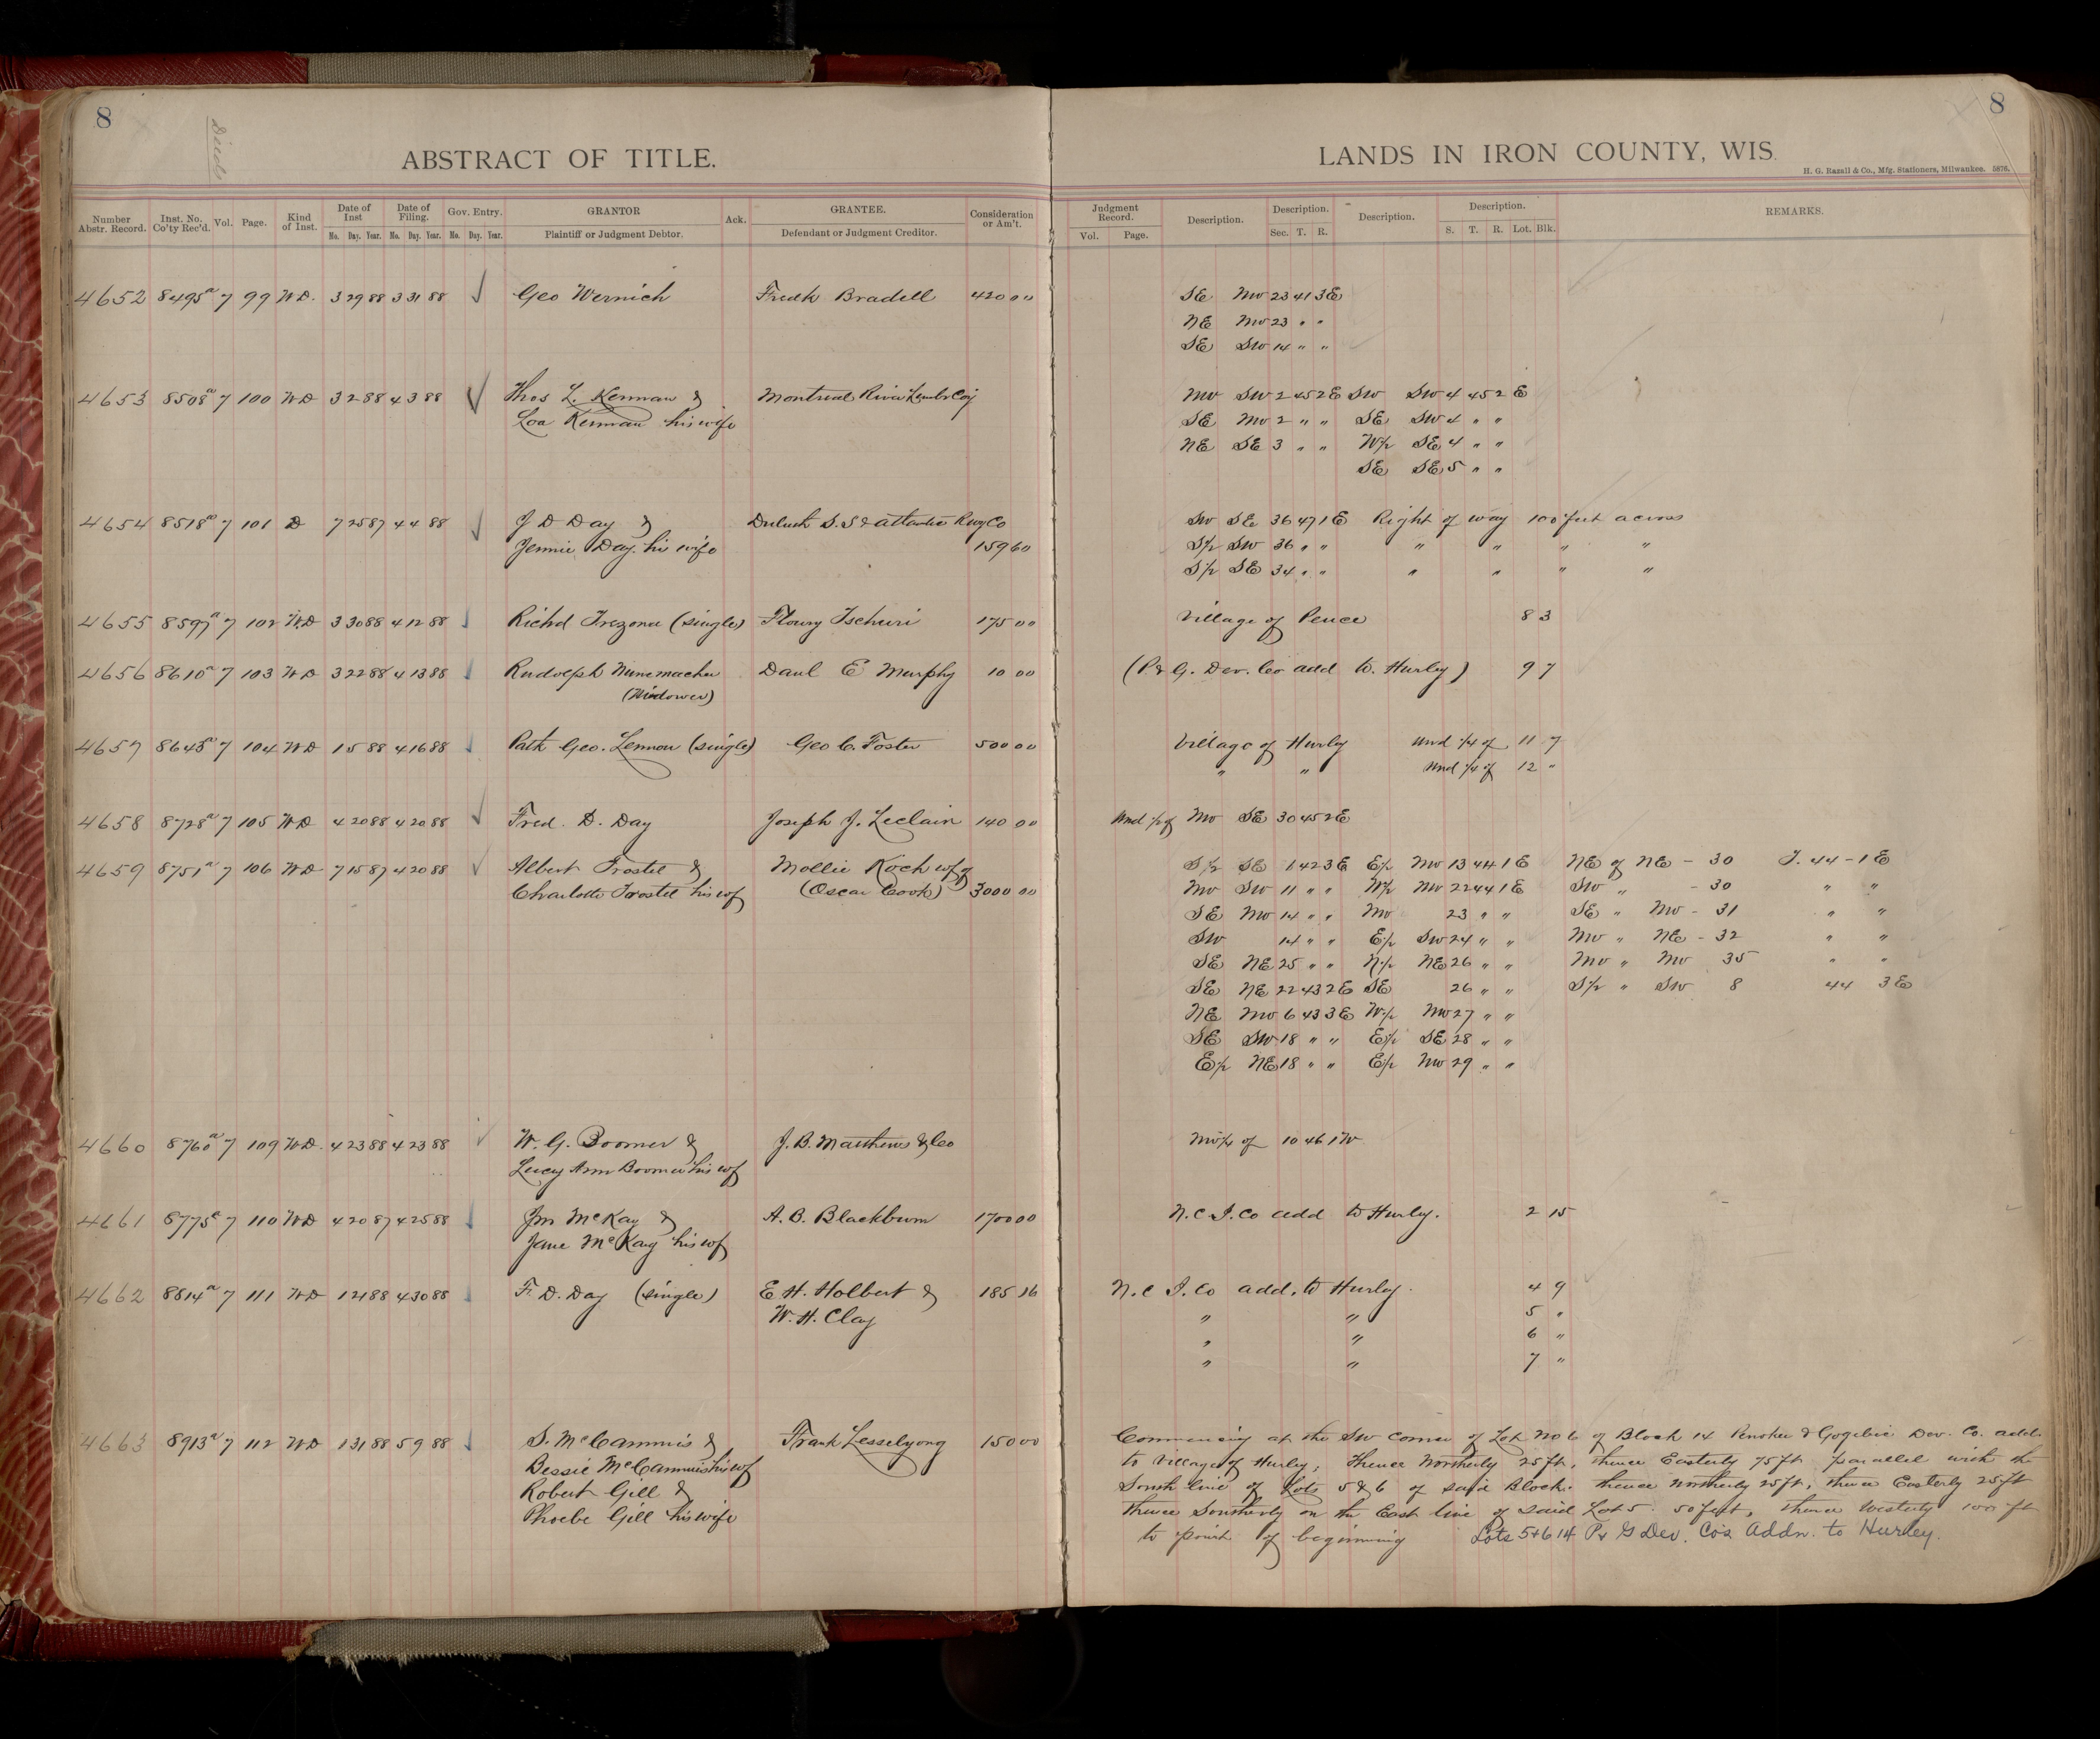 8
Deeds
ABSTRACT OF TITLE.
Number Abstr. Record. Inst. No. Co'ty Rec'd. Vol. Page. Kind of Inst. Date of Inst Mo. Day. Year. Date of Filing. Mo. Day. Year. Gov. Entry. Mo. Day. Year. GRANTOR Plaintiff or Judgment Debtor. Ack. GRANTEE. Defendant or Judgment Creditor. Consideration or Am't.
4652 8495a 7 99 WD. 3 29 88 3 31 88 Geo Wernich Fredk Bradell 420 00
4653 8508a 7 100 WD 3 2 88 4 3 88 Thos L. Kennan & Montreal River Lumbr Coy
Loa Kennan his wife
4654 8518a 7 101 D 7 25 87 4 4 88 J D Day & Duluth S.S & Atlantic Rwy Co
Jennie Day his wife 159 60
4655 8597a 7 102 WD 3 30 88 4 12 88 Richd Trezona (single) Floury Tschuri 175 00
4656 8610a 7 103 WD 3 22 88 4 13 88 Rudolph Nunemacher Danl E Murphy 10 00
(Widower)
4657 8645a 7 104 WD 1 5 88 4 16 88 Patk Geo. Lennon (single) Geo C. Foster 500 00
4658 8728a 7 105 WD 4 20 88 4 20 88 Fred. D. Day Joseph J. Leclain 140 00
4659 8751a 7 106 WD 7 15 87 4 20 88 Albert Trostel & Mollie Koch wf of
Charlotte Trostel his wf (Oscar Cook) 3000 00
4660 8760a 7 109 WD. 4 23 88 4 23 88 W. G. Boomer & J. B. Matthews & Co
Lucy Ann Boomer his wf
4661 8775a 7 110 WD 4 20 87 4 25 88 Jno McKay & A. B. Blackburn 1700 00
Jane McKay his wf
4662 8814a 7 111 WD 1 21 88 4 30 88 F. D. Day (single) E H. Holbert & 185 16
W. H. Clay
4663 8913a 7 112 WD 1 31 88 5 9 88 S. McCammis & Frank Lesselyong 150 00
Bessie McCammis his wf
Robert Gill &
Phoebe Gill his wife
8
LANDS IN IRON COUNTY, WIS.
H. G. Razall & Co., Mfg. Stationers, Milwaukee. 5876.
Judgment Record. Vol. Page. Description. Description. Sec. T. R. Description. Description. S. T. R. Lot. Blk. REMARKS.
SE NW 23 41 3E
NE NW 23 " "
SE SW 14 " "
NW SW 2 45 2E SW SW 4 45 2 E
SE NW 2 " " SE SW 4 " "
NE SE 3 " " W½ SE 4 " "
SE SE 5 " "
SW SE 36 47 1E Right of way 100 feet across
S½ SW 36 " " " " " "
S½ SE 34 " " " " " "
Village of Pence 8 3
(P & G. Dev. Co add to. Hurley) 9 7
Village of Hurley Und ¼ of 11 7
" " Und ¼ of 12 "
Und ½ of NW SE 30 45 2E
S½ SE 1 42 3E E½ NW 13 44 1 E NE of NE - 30 T. 44 - 1 E
NW SW 11 " " W½ NW 22 44 1 E SW " - 30 " "
SE NW 14 " " NW 23 " " SE " NW - 31 " "
SW 14 " " E½ SW 24 " " NW " NE - 32 " "
SE NE 25 " " N½ NE 26 " " NW " NW 35 " "
SE NE 22 43 2E SE 26 " " S½ " SW 8 44 3E
NE NW 6 43 3E W½ NW 27 " "
SE SW 18 " " E½ SE 28 " "
E½ NE 18 " " E½ NW 29 " "
NW¼ of 10 46 1W
N. C. I. Co add to Hurley. 2 15
N. C I. Co add. to Hurley. 4 9
" " 5 "
" " 6 "
" " 7 "
Commencing at the SW corner of Lot No 6 of Block 14 Penokee & Gogebic Dev. Co. add.
to Village of Hurley, Thence Northerly 25 ft, thence Easterly 75 ft parallel with the
South line of Lots 5 & 6 of said Block. thence northerly 25 ft, thence Easterly 25 ft
thence Southerly on the East line of said Lot 5. 50 feet, thence Westerly 100 ft
to point of beginning Lots 5+6 14 P & G Dev. Co's Addn. to Hurley.